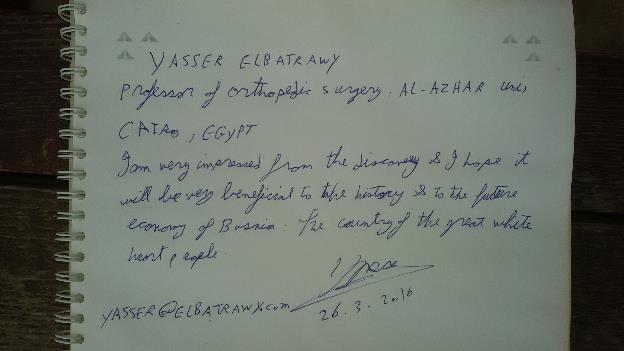 YASSER ELBATRAWY
Professor of orthopedic surgery. AL-AZHAR uni,
CAIRO, EGYPT
I am very impressed from the discovery & I hope it
will be very beneficial to the history & to the future
economy of Bosnia: The country of the great white
heart people.
YASSER@ELBATRAWY.com
26.3.2016